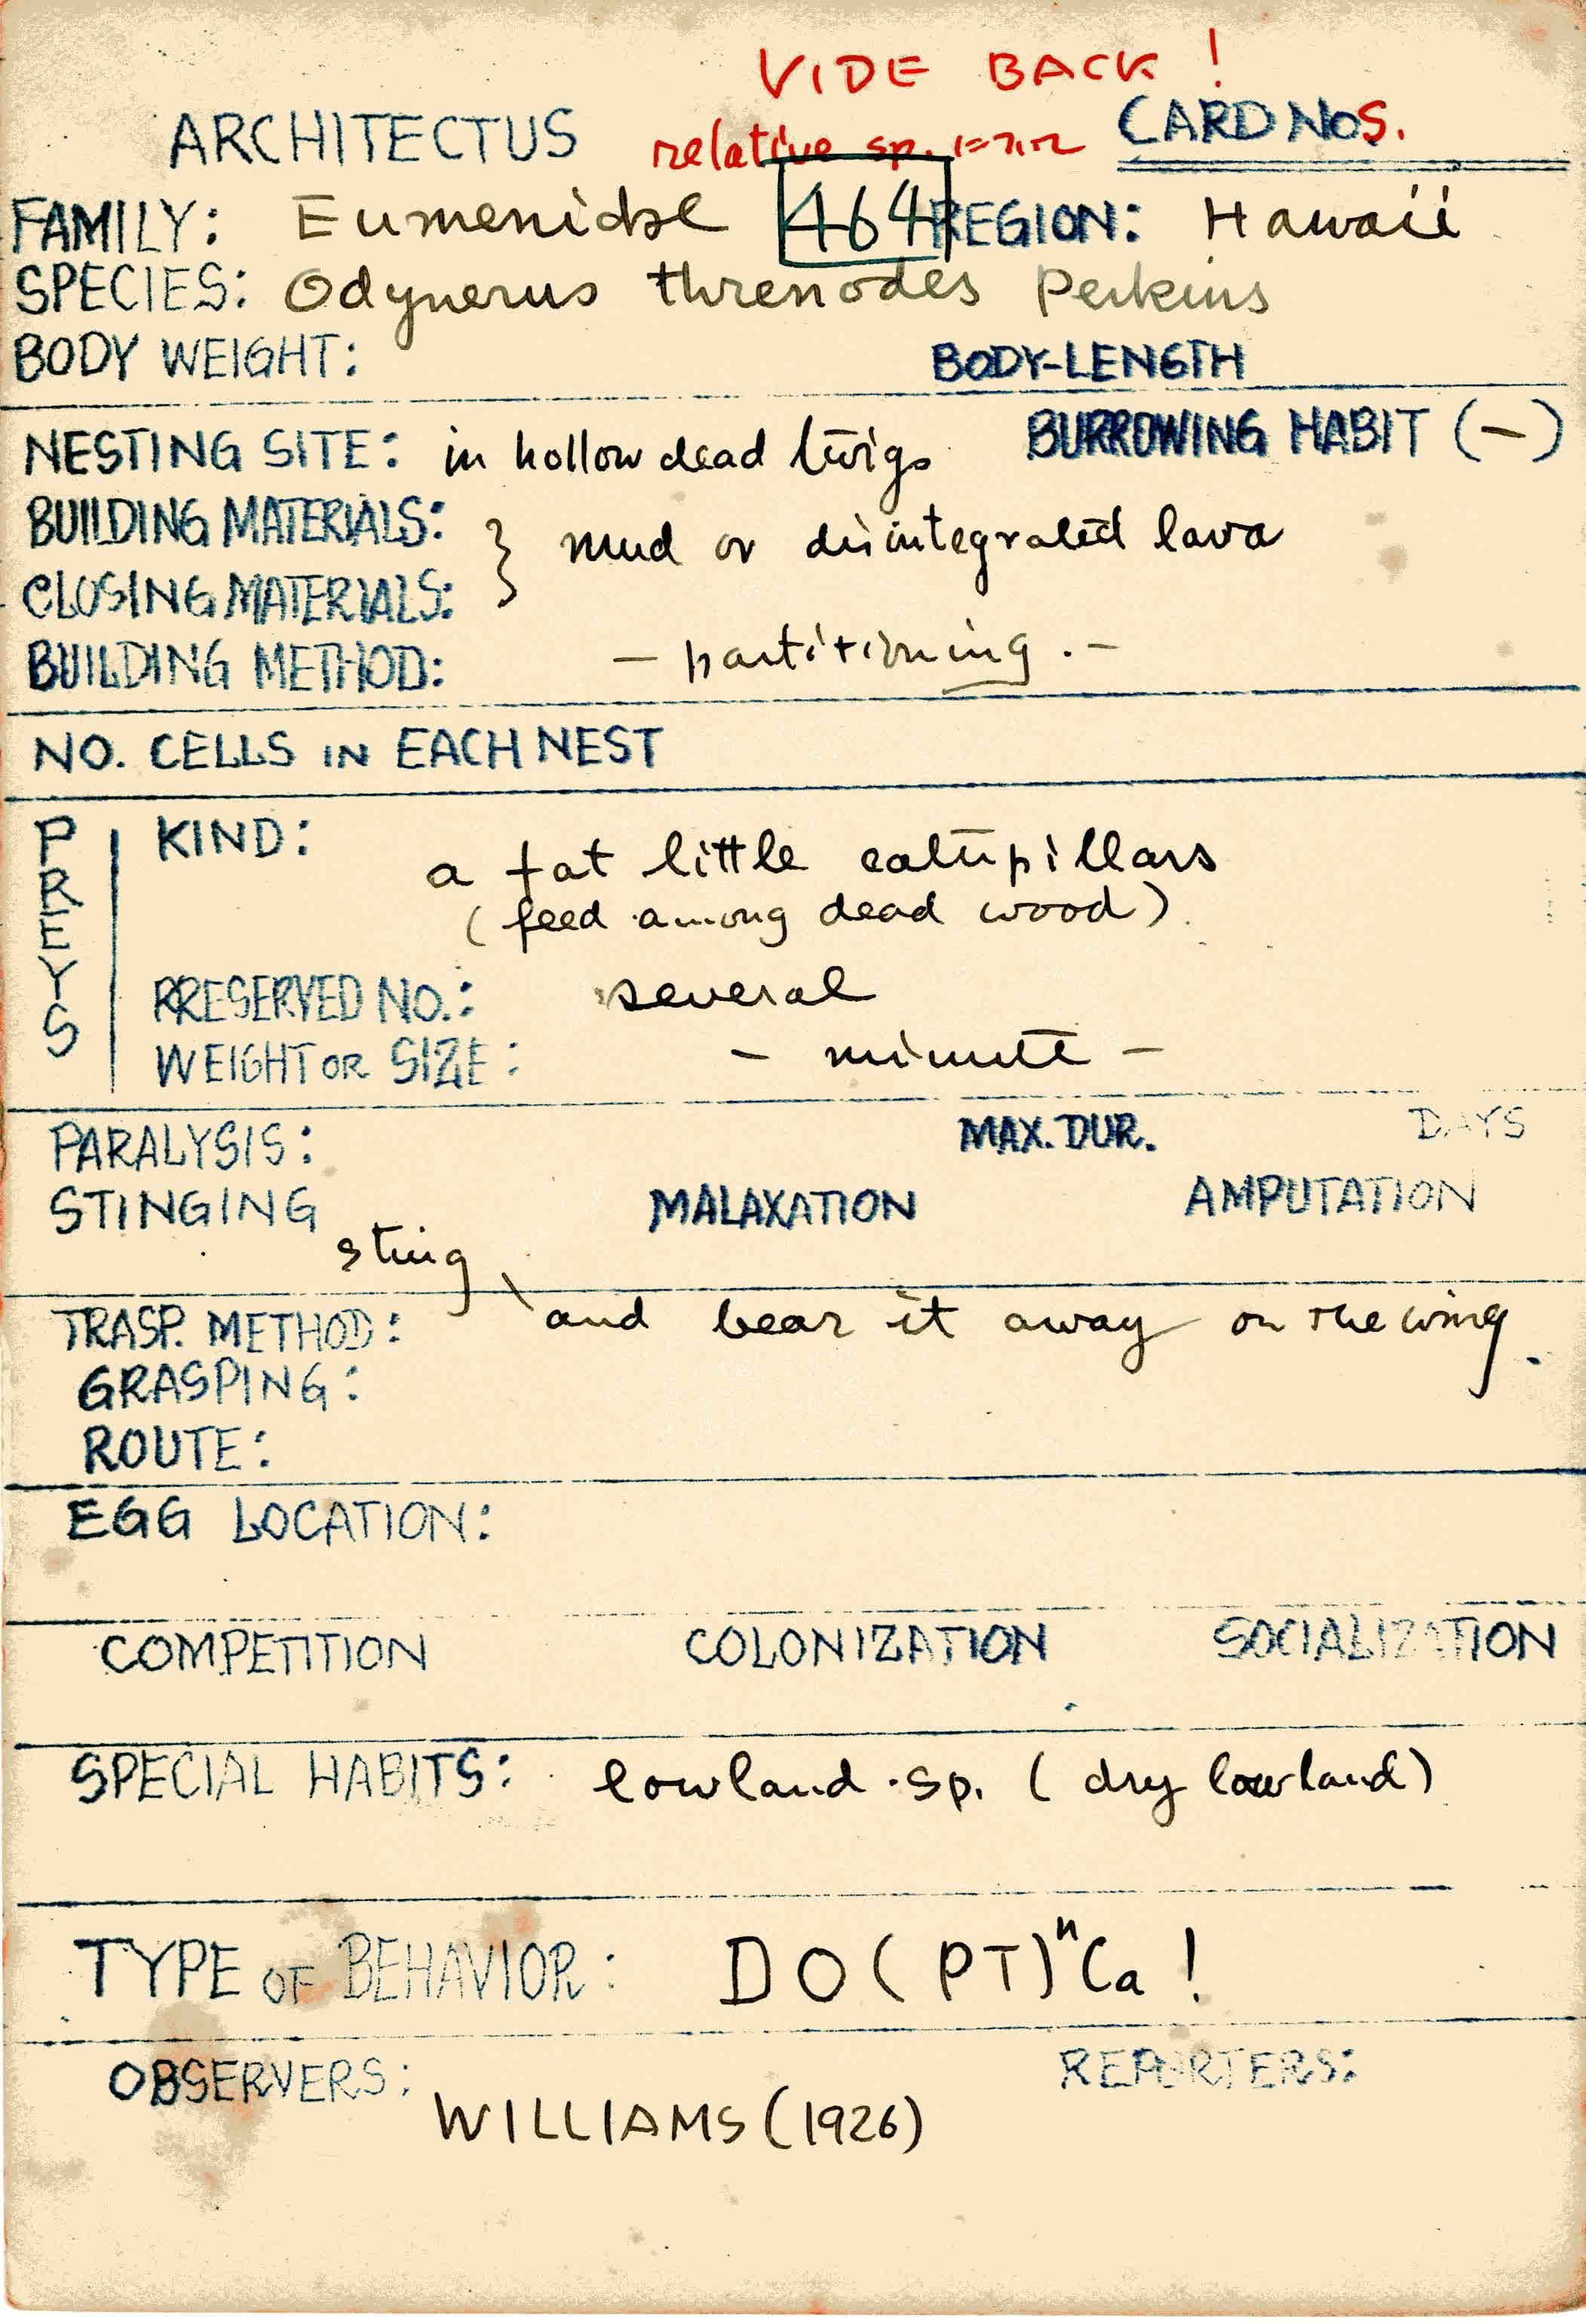 VIDE BACK !
ARCHITECTUS relative sp. について CARD NOS.
FAMILY: Eumenidae 464 REGION: Hawaii
SPECIES: Odynerus threnodes Perkins
BODY WEIGHT: BODY-LENGTH
NESTING SITE: in hollow dead twigs BURROWING HABIT (-)
BUILDING MATERIALS: } mud or disintegrated lava
CLOSING MATERIALS:
BUILDING METHOD: - partitioning. -
NO. CELLS IN EACH NEST
PREYS
KIND: a fat little caterpillars
(feed among dead wood).
PRESERVED NO.: several
WEIGHT OR SIZE: - minute -
PARALYSIS: MAX. DUR. DAYS
STINGING MALAXATION AMPUTATION
sting
TRASP. METHOD: and bear it away on the wing.
GRASPING:
ROUTE:
EGG LOCATION:
COMPETITION COLONIZATION SOCIALIZATION
SPECIAL HABITS: lowland sp. (dry lowland)
TYPE OF BEHAVIOR: DO(PT)ⁿCa!
OBSERVERS: REPORTERS:
WILLIAMS (1926)